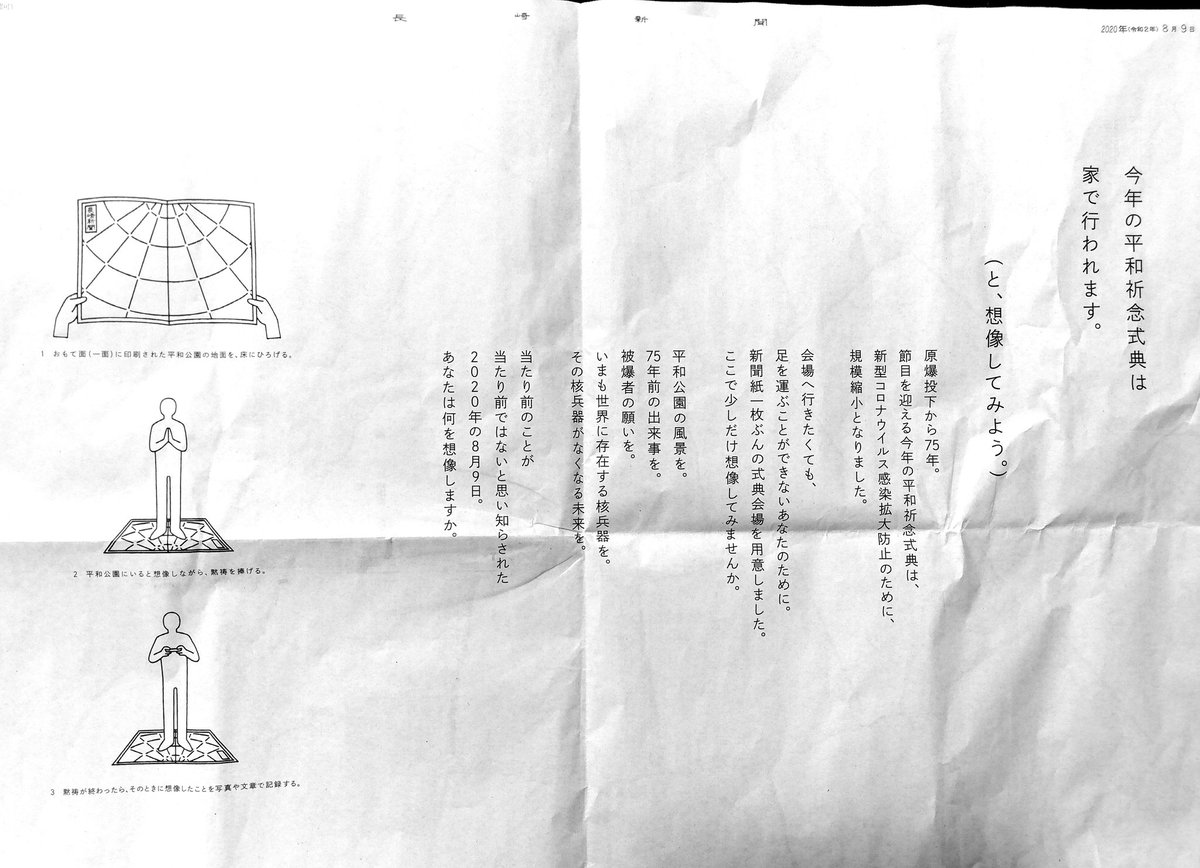 長崎新聞
2020年(令和2年)8月9日
今年の平和祈念式典は
家で行われます。
(と、想像してみよう。)
原爆投下から75年。
節目を迎える今年の平和祈念式典は、
新型コロナウイルス感染拡大防止のために、
規模縮小となりました。
会場へ行きたくても、
足を運ぶことができないあなたのために。
新聞紙一枚ぶんの式典会場を用意しました。
ここで少しだけ想像してみませんか。
平和公園の風景を。
75年前の出来事を。
被爆者の願いを。
いまも世界に存在する核兵器を。
その核兵器がなくなる未来を。
当たり前のことが
当たり前ではないと思い知らされた
2020年の8月9日。
あなたは何を想像しますか。
長崎新聞
1 おもて面(一面)に印刷された平和公園の地面を、床にひろげる。
2 平和公園にいると想像しながら、黙祷を捧げる。
3 黙祷が終わったら、そのときに想像したことを写真や文章で記録する。